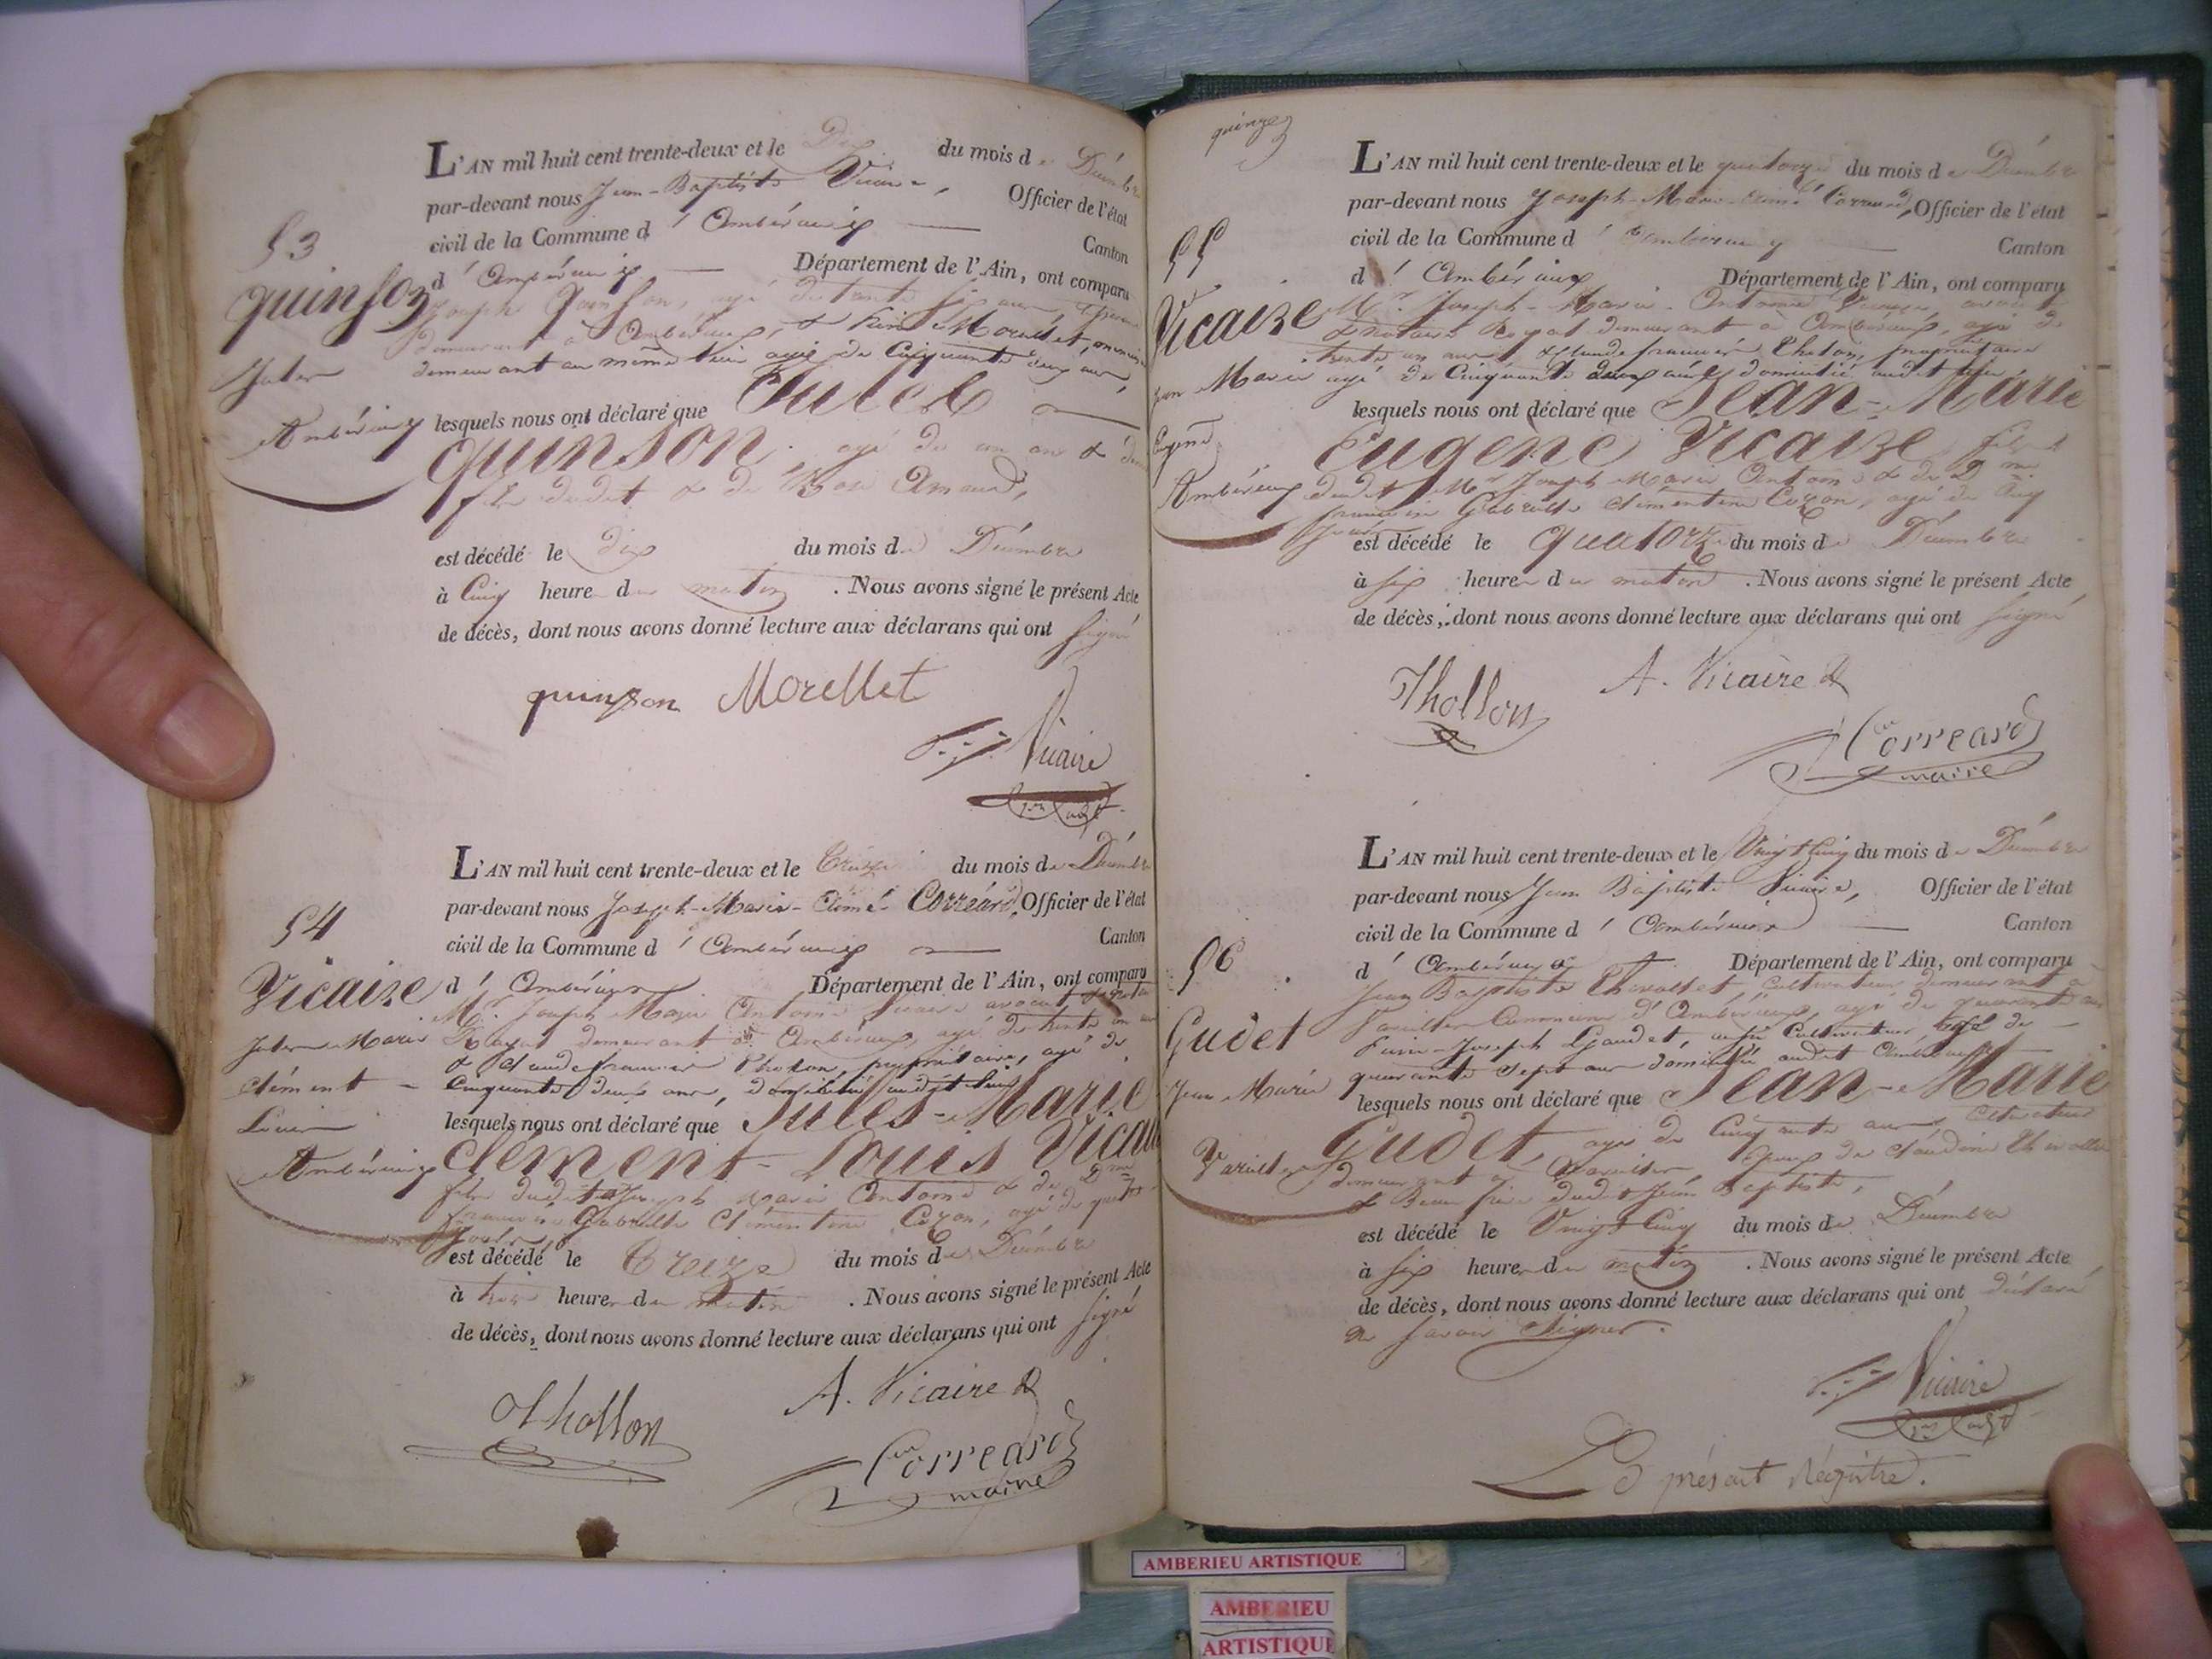 L'AN mil huit cent trente-deux et le Dix du mois de Décembre
par-devant nous Jean-Baptiste Vicaire, Officier de l'état
civil de la Commune d'Ambérieux Canton
53
d'Ambérieux Département de l'Ain, ont comparu
quinson
Joseph Quinson, agé de trente six ans,
demeurant à Ambérieux, & Morellet,
Jules
demeurant au même lieu agé de Cinquante deux ans,
Ambérieux
lesquels nous ont déclaré que Jules
quinson agé de un an &
fils dudit & de Rose
est décédé le dix du mois de Décembre
à Cinq heure du matin. Nous avons signé le présent Acte
de décès, dont nous avons donné lecture aux déclarans qui ont signé
quinson Morellet
Vicaire
L'AN mil huit cent trente-deux et le Treize du mois de Décembre
par-devant nous Joseph-Marie-Aimé Corréard, Officier de l'état
54
civil de la Commune d'Ambérieux Canton
Vicaire
d'Ambérieux Département de l'Ain, ont comparu
Mr. Joseph Marie Antoine Vicaire avocat & notaire
Jules Marie
Royal demeurant à Ambérieux, agé de trente un ans
& Claude françois Tholon, propriétaire, agé de
clément
Cinquante deux ans, domicilié audit lieu
Louis
lesquels nous ont déclaré que Jules-Marie
Ambérieux
Clément-Louis Vicaire
fils dudit Joseph Marie Antoine & de Dme
françoise Gabrielle Clémentine Cozon, agé de quatre
jours,
est décédé le Treize du mois de Décembre
à trois heure du matin. Nous avons signé le présent Acte
de décès, dont nous avons donné lecture aux déclarans qui ont signé
Thollon A. Vicaire
Corréard
maire
quinze
L'AN mil huit cent trente-deux et le quatorze du mois de Décembre
par-devant nous Joseph-Marie-Aimé Corréard, Officier de l'état
55
civil de la Commune d'Ambérieux Canton
d'Ambérieux Département de l'Ain, ont comparu
Vicaire
Mr. Joseph-Marie-Antoine Vicaire avocat
& notaire Royal demeurant à Ambérieux, agé de
trente un ans, & Claude françois Tholon, propriétaire
Jean Marie
agé de Cinquante deux ans domicilié audit lieu
lesquels nous ont déclaré que Jean-Marie
Eugène
Eugène Vicaire, fils
Ambérieux
dudit Mr Joseph Marie Antoine & de Dme
françoise Gabrielle Clémentine Cozon, agé de Cinq
jours
est décédé le quatorze du mois de Décembre
à six heure du matin. Nous avons signé le présent Acte
de décès, dont nous avons donné lecture aux déclarans qui ont signé
Thollon A. Vicaire
Corréard
maire
L'AN mil huit cent trente-deux et le Vingt Cinq du mois de Décembre
par-devant nous Jean Baptiste Vicaire, Officier de l'état
civil de la Commune d'Ambérieux Canton
56
d'Ambérieux Département de l'Ain, ont comparu
Jean Baptiste Chevallet, Cultivateur demeurant à
Vareilles Commune d'Ambérieux, agé de quarante ans
Gudet
Joseph Gaudet, aussi Cultivateur agé de
quarante sept ans domicilié audit Ambérieux
Jean Marie
lesquels nous ont déclaré que Jean-Marie
Gudet, agé de Cinquante ans Cultivateur
Vareilles
demeurant à Vareilles, époux de Claudine Chevallet
& Beau frère dudit Jean Baptiste,
est décédé le Vingt Cinq du mois de Décembre
à six heure du matin. Nous avons signé le présent Acte
de décès, dont nous avons donné lecture aux déclarans qui ont déclaré
ne savoir signer.
Vicaire
Le présent Régistre.
AMBERIEU ARTISTIQUE
AMBERIEU
ARTISTIQUE